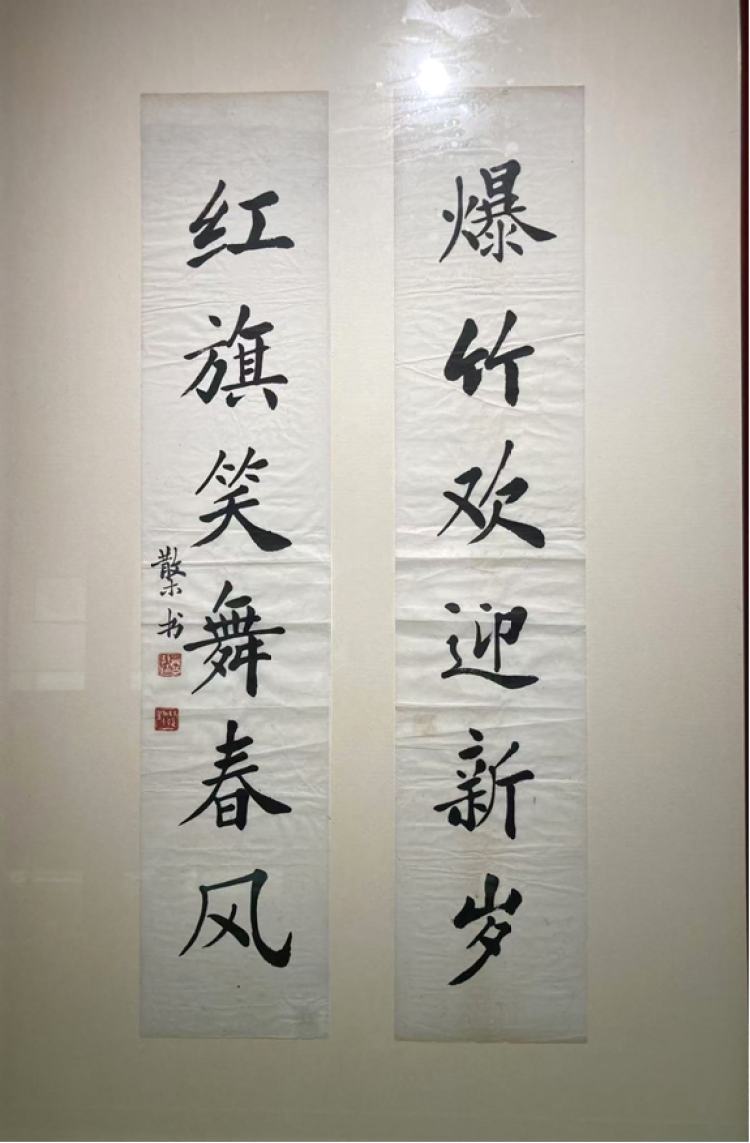 爆竹欢迎新岁
红旗笑舞春风
书